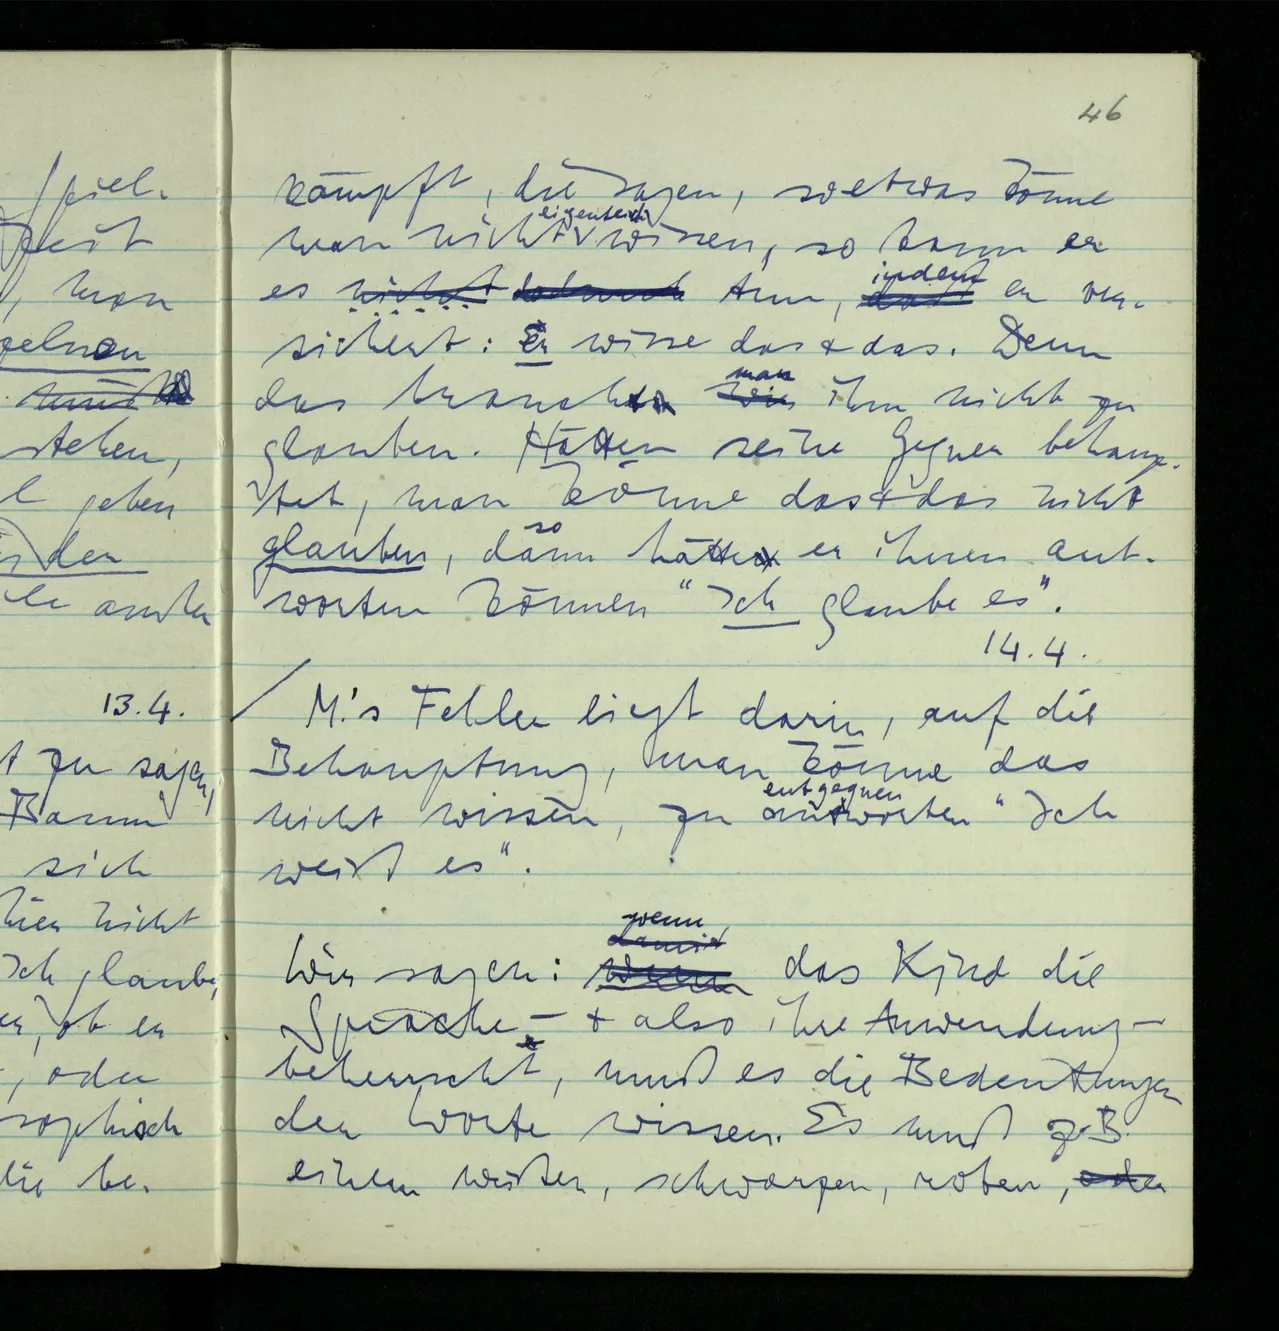 46
Spiel-
zeit
, man
zelnen
stehen,
geben
der
andern
13.4.
zu sagen,
Baum
sich
hier nicht
Ich glaube,
er, ob er
, oder
sophisch
die be-
kämpft, die sagen, soetwas könne
man nicht eigentlich wissen, so kann er
es nicht dadurch tun, daß indem er ver-
sichert: Er wisse das & das. Denn
das braucht wir man ihm nicht zu
glauben. Hätten seine Gegner behaup-
tet, man könne das & das nicht
glauben, dann so hätte er ihnen ant-
worten können "Ich glaube es".
14.4.
/ M.'s Fehler liegt darin, auf die
Behauptung, man könne das
nicht wissen, zu antworten entgegnen "Ich
weiß es".
Wir sagen: wenn damit wenn das Kind die
Sprache – & also ihre Anwendung –
beherrscht, muß es die Bedeutungen
der Worte wissen. Es muß z.B.
einem weißen, schwarzen, roten, oder